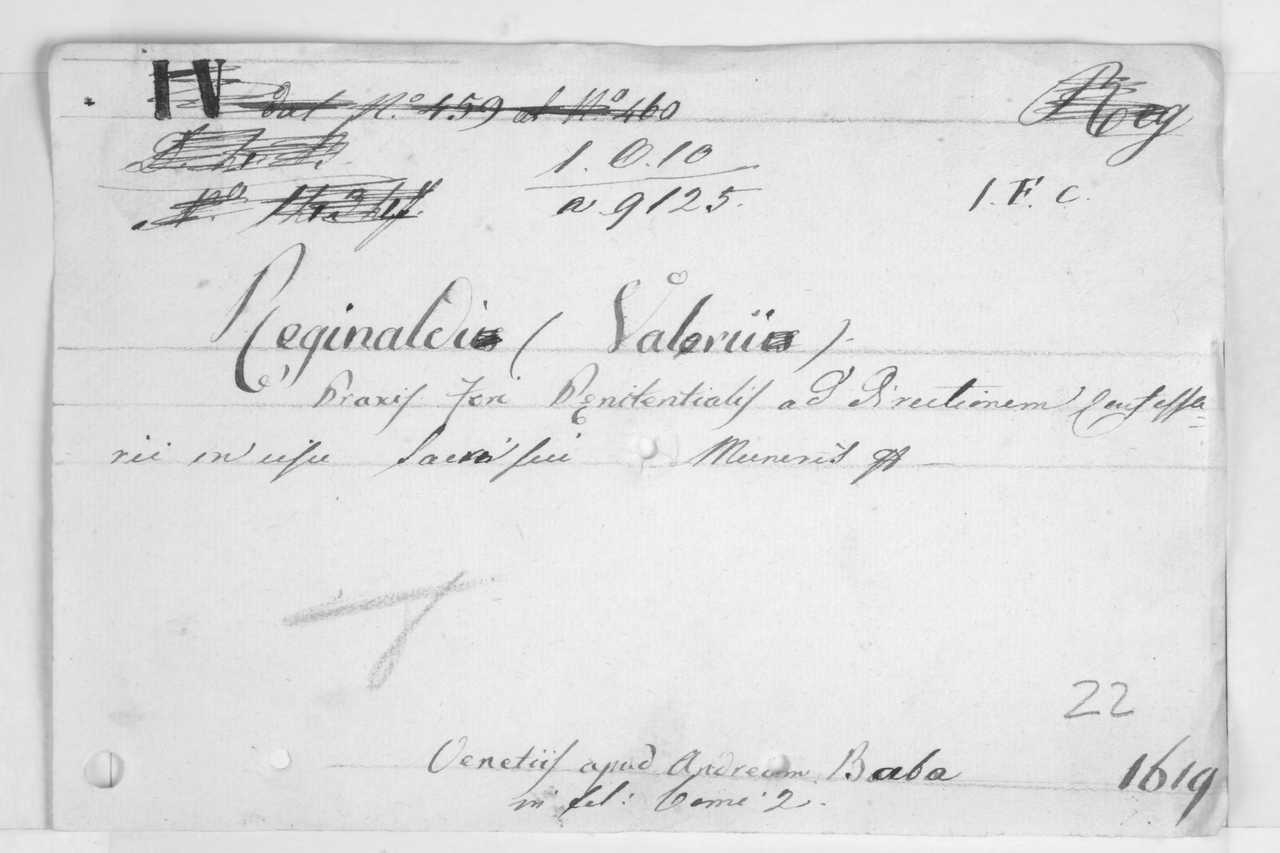 H
N.º 459 et N.º 460 Reg
1. O. 10
a 9125. 1. F. C.
Reginaldi ( Valerii ).
Praxis Fori Penitentialis ad Directionem Confessa=
rii in usu Sacri sui Muneris
22
Venetiis apud Andream Baba 1619
in fol: Tomi 2.